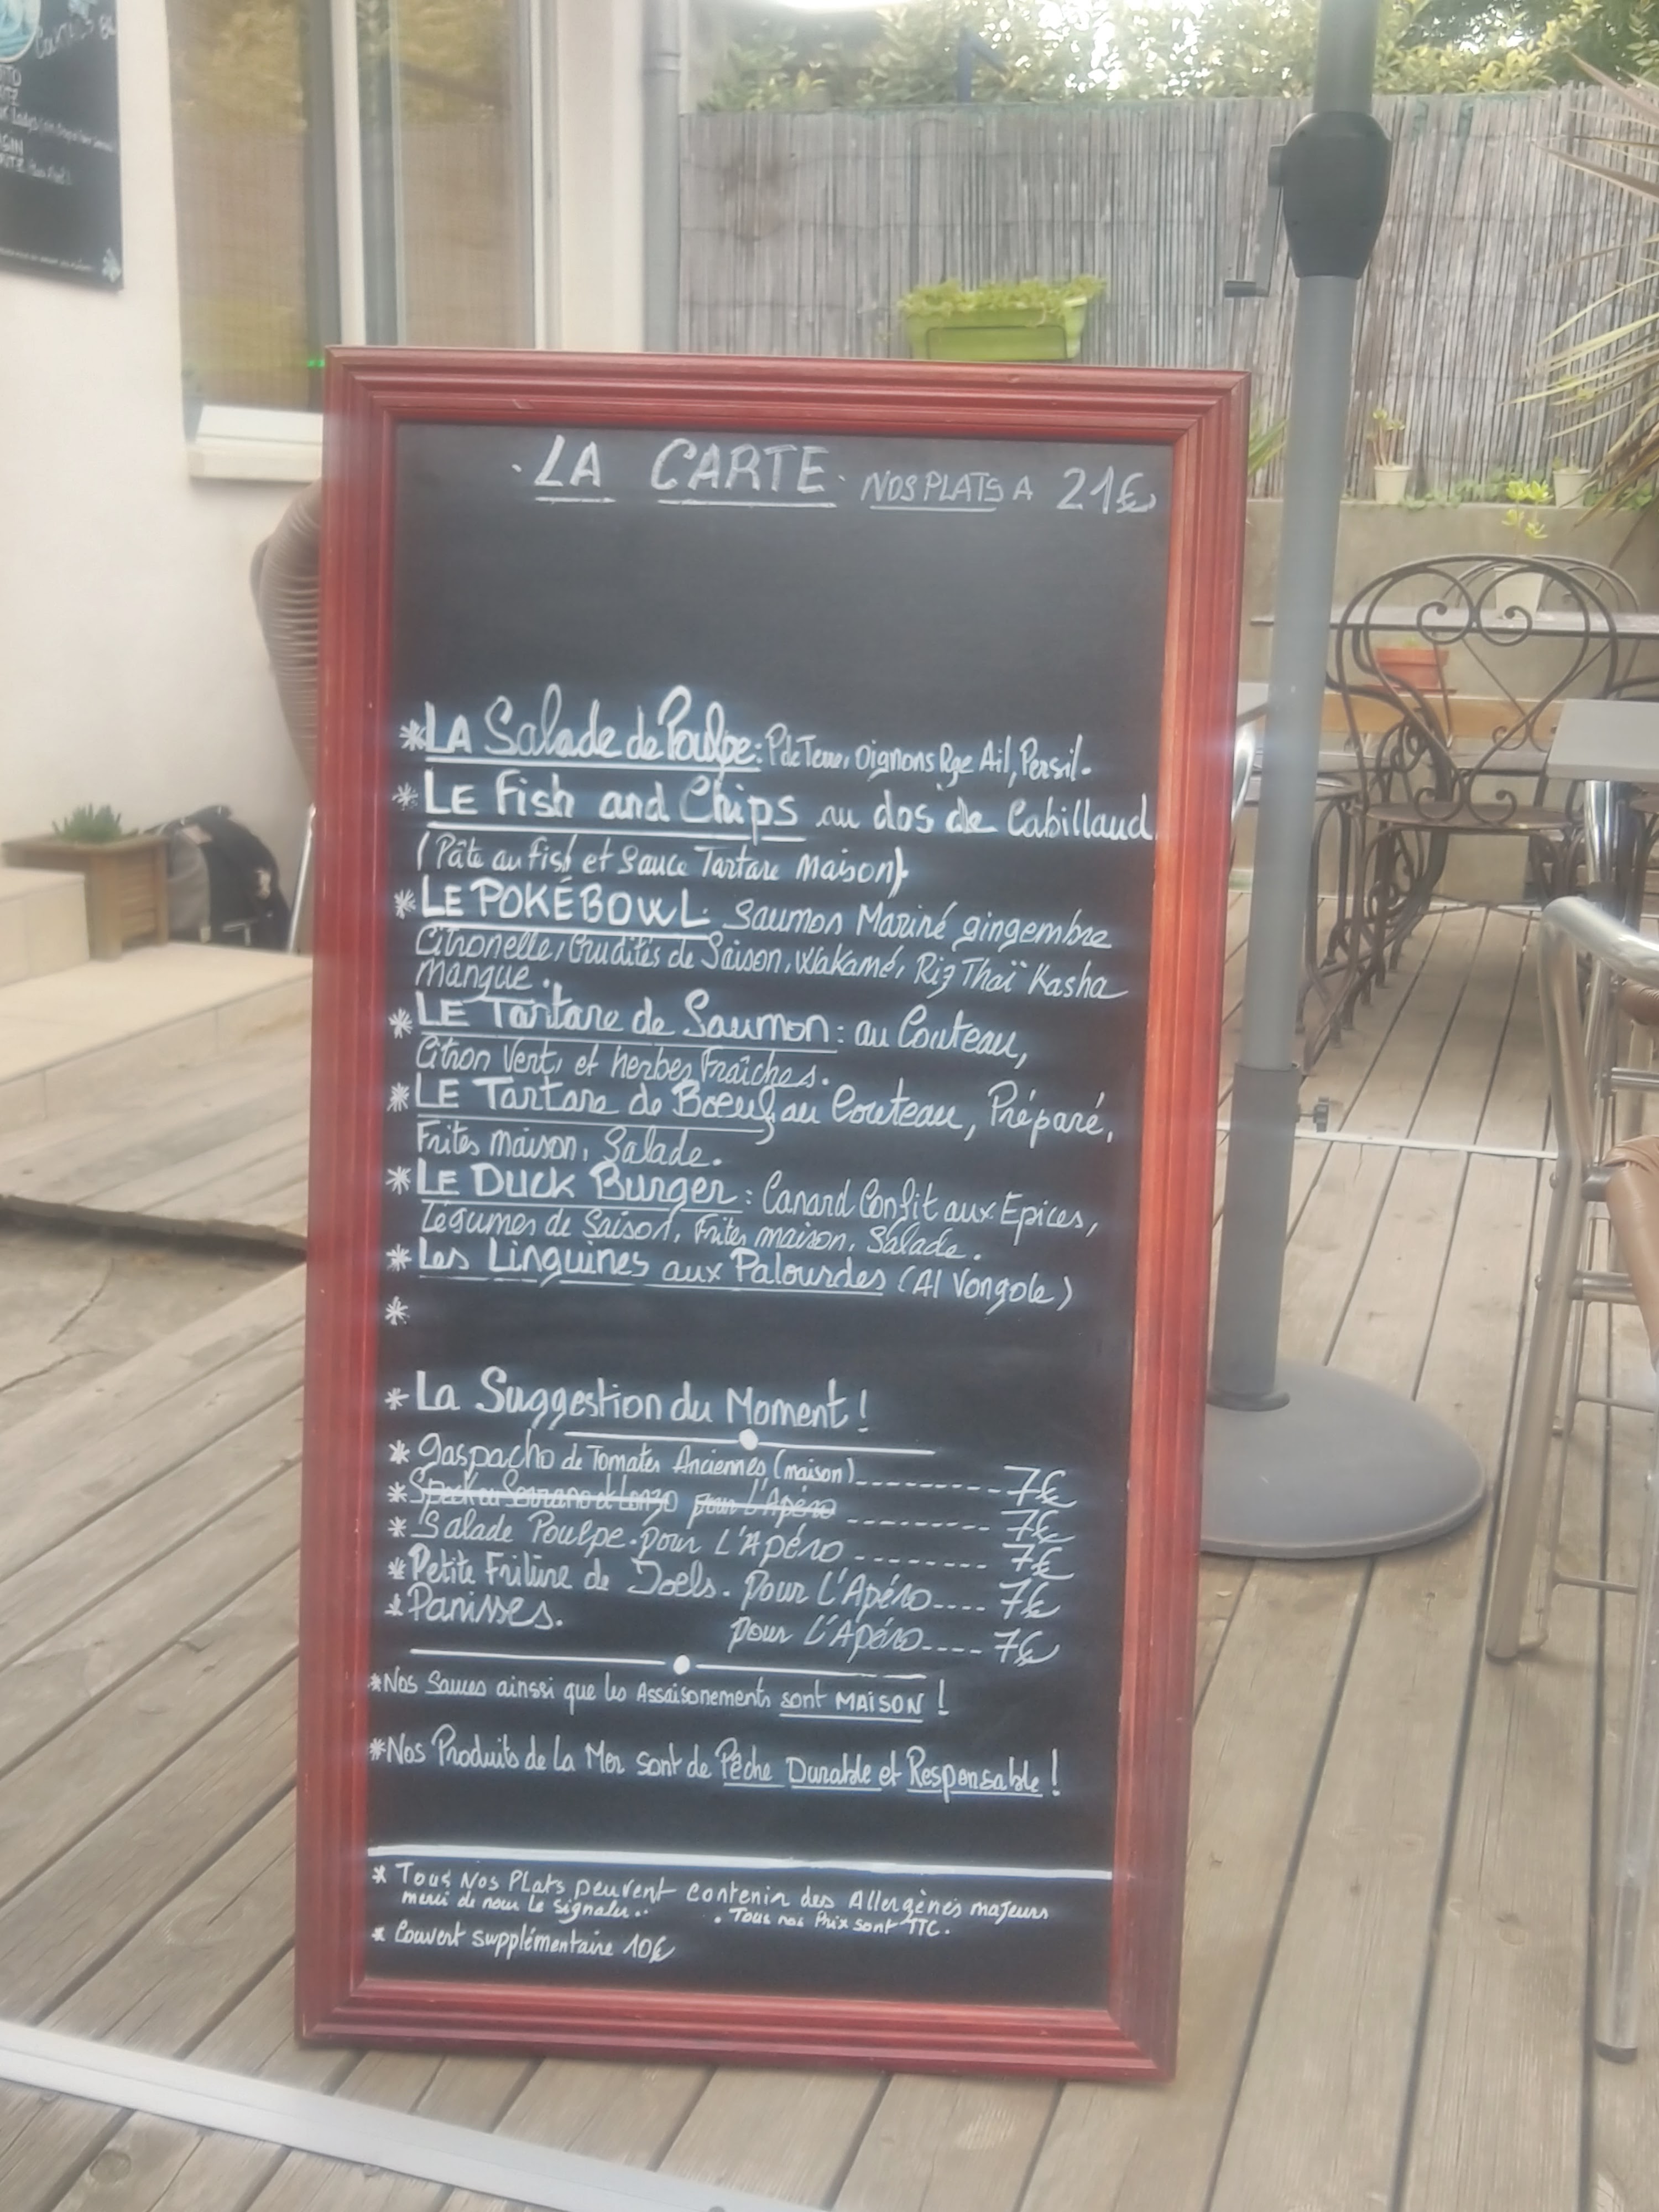 COCKTAILS 8€
GIN
· LA CARTE · NOS PLATS A 21€
*LA Salade de Poulpe: P de Terre, Oignons Rge Ail, Persil.
* LE Fish and Chips au dos de Cabillaud
(Pâte au fish et Sauce Tartare Maison).
* LE POKÉBOWL: Saumon Mariné gingembre
Citronelle, Crudités de Saison, Wakamé, Riz Thaï Kasha
mangue.
* LE Tartare de Saumon: au Couteau,
Citron Vert, et herbes Fraîches.
* LE Tartare de Boeuf au Couteau, Préparé,
Frites maison, Salade.
* LE DUCK Burger: Canard Confit aux Epices,
Légumes de Saison, Frites maison, Salade.
* Les Linguines aux Palourdes (Al Vongole)
*
* La Suggestion du Moment!
* gaspacho de Tomates Anciennes (maison)--------- 7€
* Speck ou Serrano et Lonzo pour l'Apéro -------- 7€
* Salade Poulpe. pour L'Apéro -------- 7€
* Petite Friture de Joels. pour L'Apéro---- 7€
* Panisses. pour L'Apéro---- 7€
*Nos Sauces ainssi que les Assaisonements sont MAISON !
*Nos Produits de La Mer sont de Pêche Durable et Responsable !
* Tous Nos Plats peuvent contenir des Allergènes majeurs
merci de nous le signaler.. . Tous nos Prix sont TTC.
* Couvert supplémentaire 10€